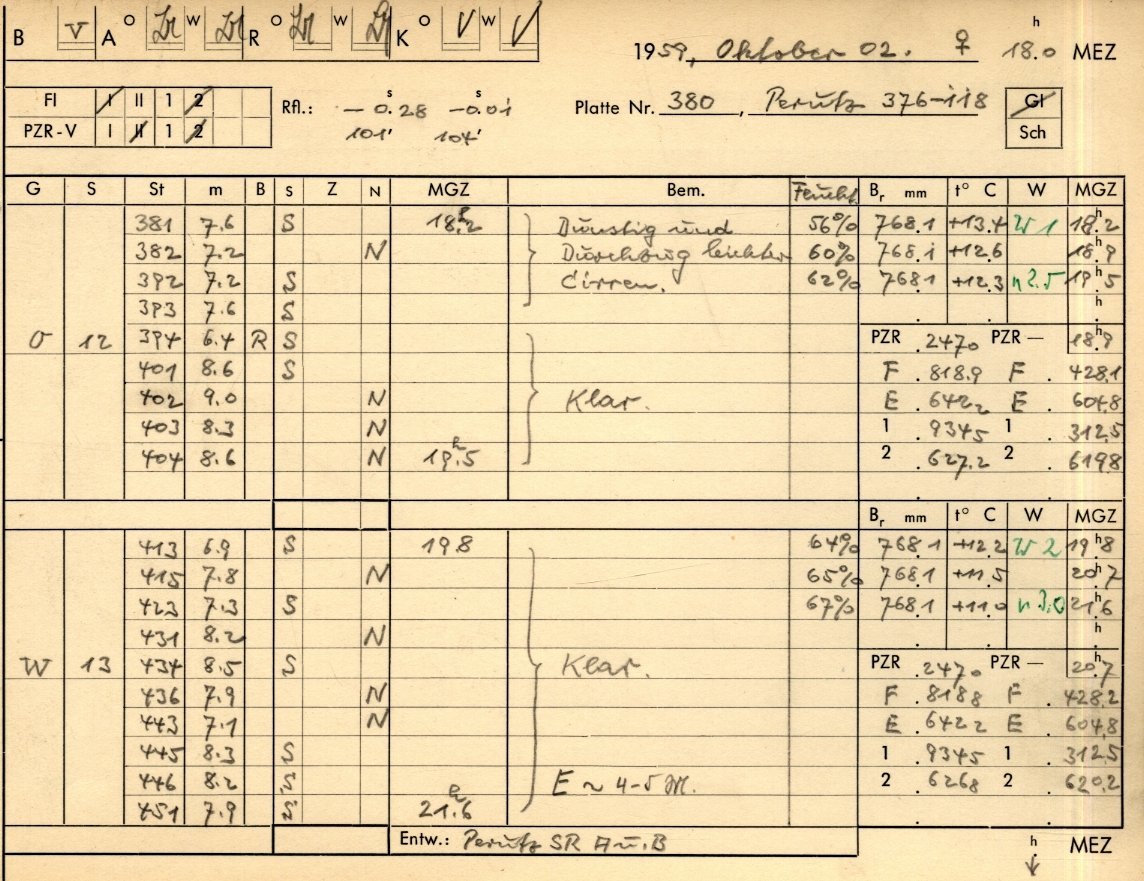 B V A O W R O W K O V W V
1959, Oktober 02. ♀ 18.0 h MEZ
FI I II 1 2 Rfl.: —0.28 s —0.01 s Platte Nr. 380, Perutz 376-118 Gl
PZR-V I II 1 2 101' 104' Sch
G S St m B S Z N MGZ Bem. Feucht. Br mm t° C W MGZ
381 7.6 S 18.2 h Dunstig und 56% 768.1 +13.4 W 1 18.2 h
382 7.2 N Durchzug leichter 60% 768.1 +12.6 18.9 h
392 7.2 S Cirren. 62% 768.1 +12.3 n 2.5 19.5 h
393 7.6 S h
O 12 394 6.4 R S PZR .2470 PZR — 18.9 h
401 8.6 S F .818.9 F . 428.1
402 9.0 N Klar. E .642 2 E . 604.8
403 8.3 N 1 .9345 1 . 312.5
404 8.6 N 19.5 h 2 .627.2 2 . 619.8
Br mm t° C W MGZ
413 6.9 S 19.8 64% 768.1 +12.2 W 2 19.8 h
415 7.8 N 65% 768.1 +11.5 20.7 h
423 7.3 S 67% 768.1 +11.0 n 3.0 21.6 h
431 8.2 N h
W 13 434 8.5 S Klar. PZR .2470 PZR — 20.7 h
436 7.9 N F .8188 F . 428.2
443 7.1 N E .642 2 E . 604.8
445 8.3 S 1 .9345 1 . 312.5
446 8.2 S E ~ 4-5 M. 2 .6268 2 . 620.2
451 7.9 S 21.6 h
Entw.: Perutz SR A u. B h MEZ